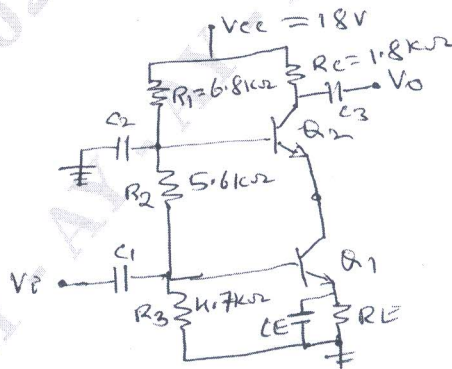 Vcc = 18V
R1=6.8kΩ
Rc=1.8kΩ
Vo
C3
C2
Q2
R2
5.6kΩ
C1
Vi
Q1
R3
4.7kΩ
CE
RE